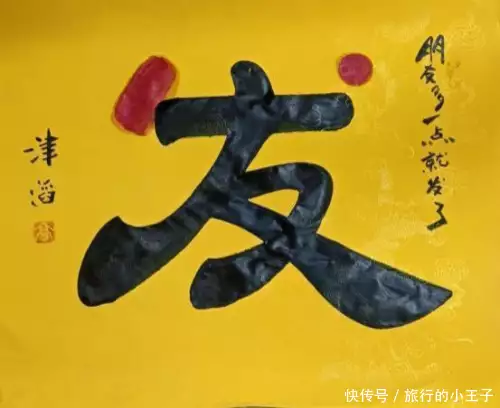 朋友多一点就发了
发
津滔
快传号/旅行的小王子